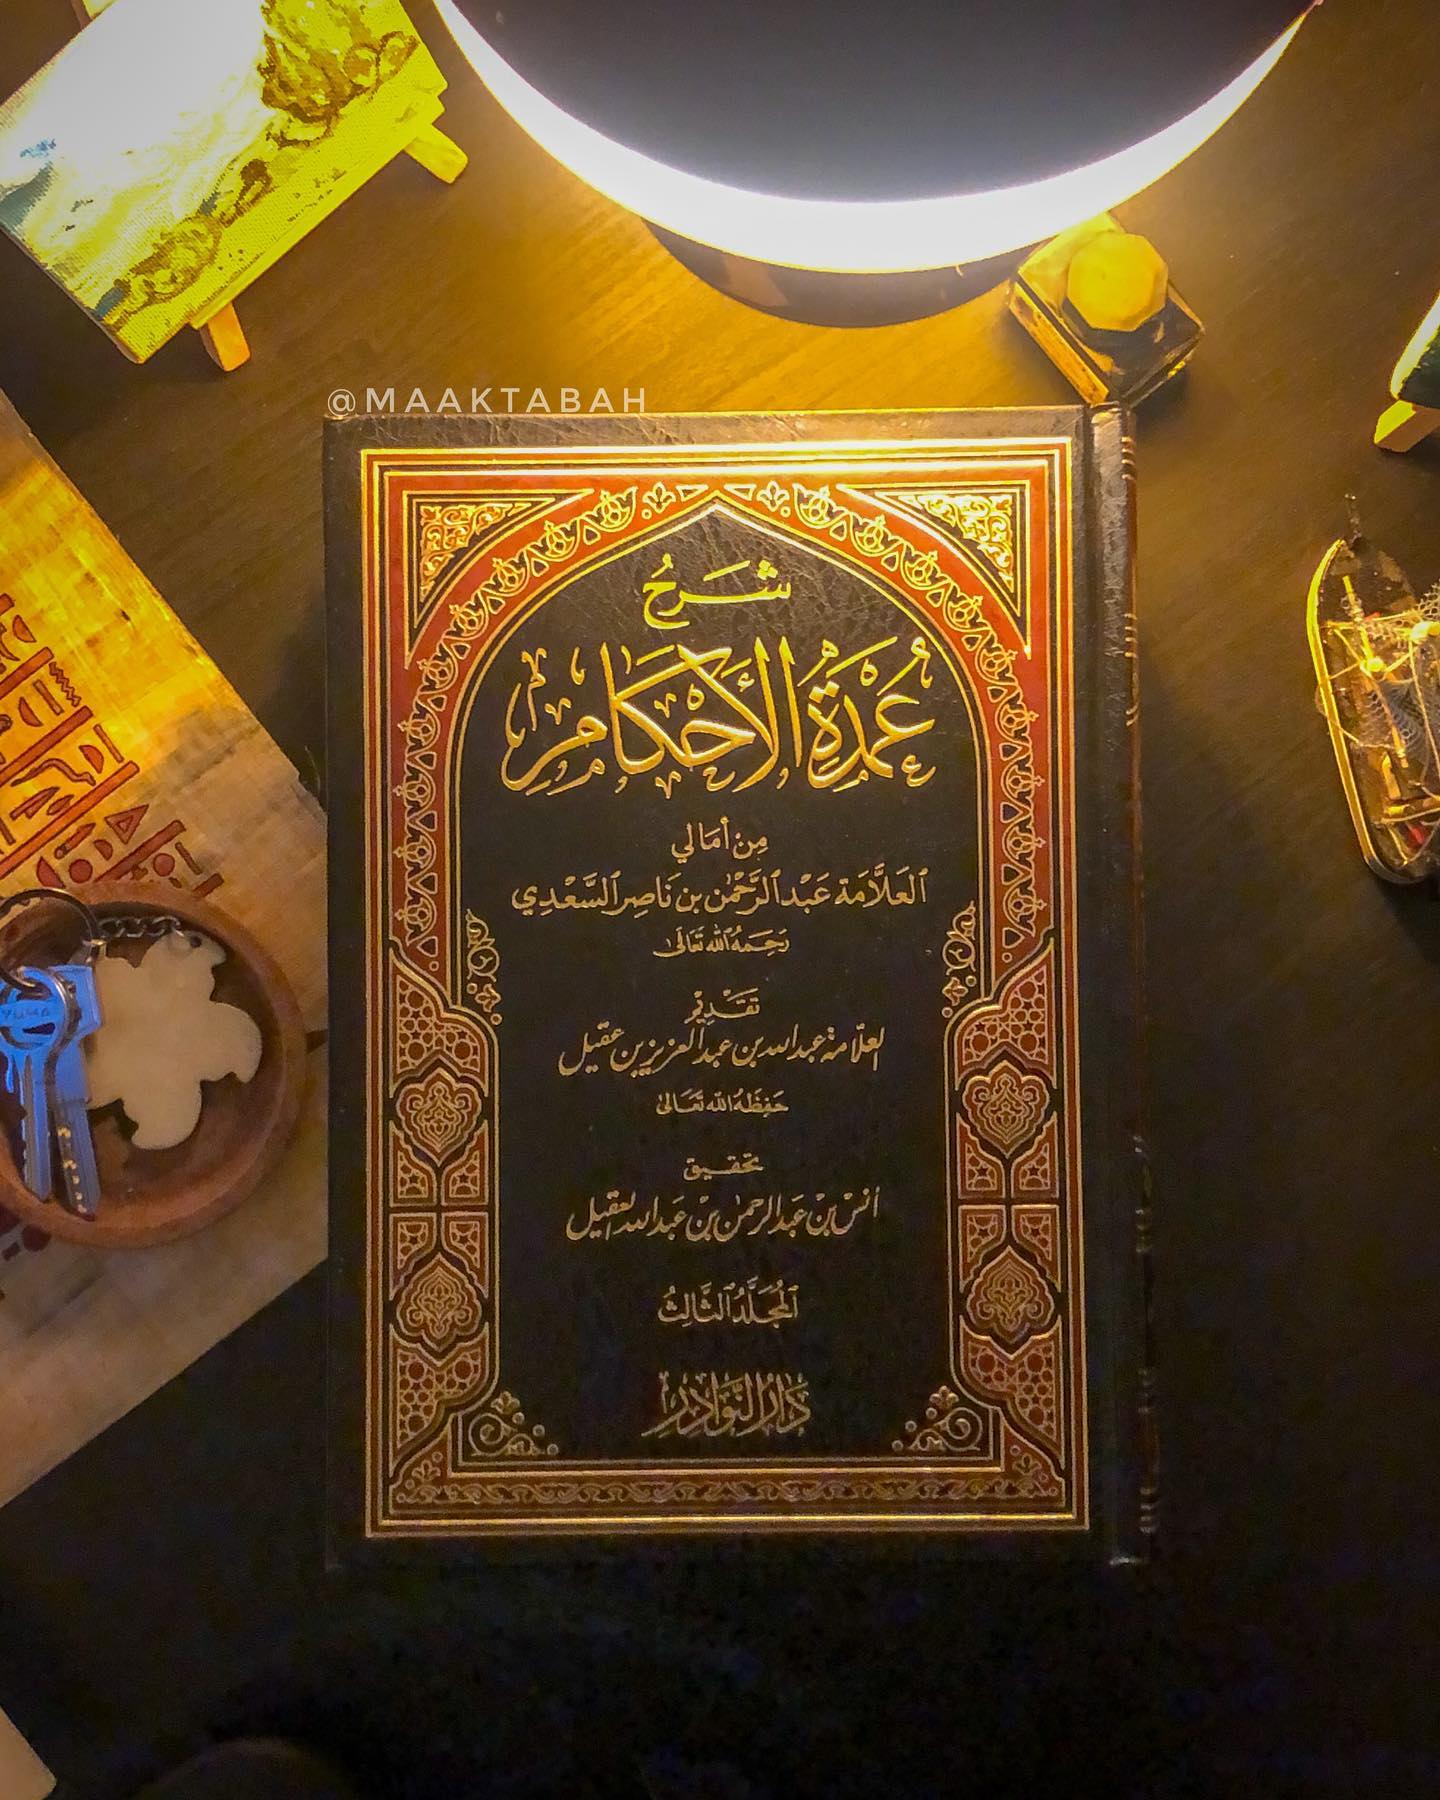 @MAAKTABAH
شَرْحُ
عُمْدَةُ الأَحْكَامِ
مِنْ أَمَالِي
العَلَّامَة عَبْد الرَّحْمٰن بن نَاصِر السَّعْدِي
رَحِمَهُ الله تَعَالَى
تَقْدِيْر
العلّامة عبد الله بن عبد العزيز بن عقيل
حَفِظَهُ الله تَعَالَى
تحقيق
أنس بن عَبد الرحمٰن بن عَبد الله العقيل
المُجَلَّدُ الثَّالِثُ
دَارُ النَّوَادِرِ